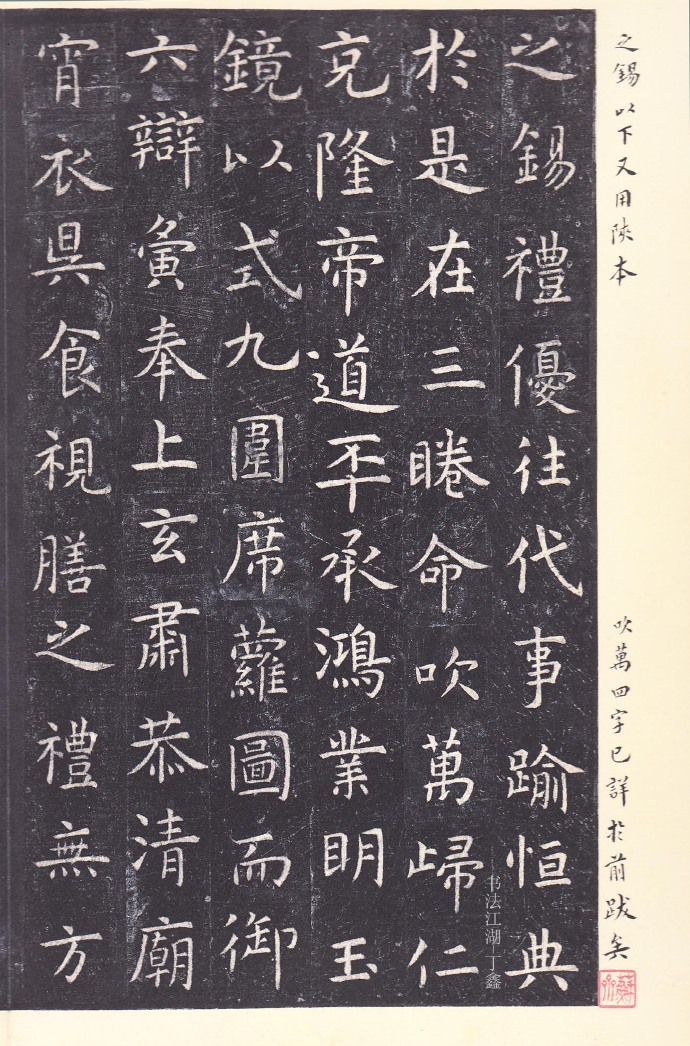 之錫以下又用陝本
吹萬四字已詳於前跋矣
之錫禮優往代事踰恒典
於是在三睠命吹萬歸仁
克隆帝道丕承鴻業明玉
鏡以式九圍席蘿圖而御
六辯寅奉上玄肅恭清廟
宵衣具食視膳之禮無方
书法江湖 丁鑫